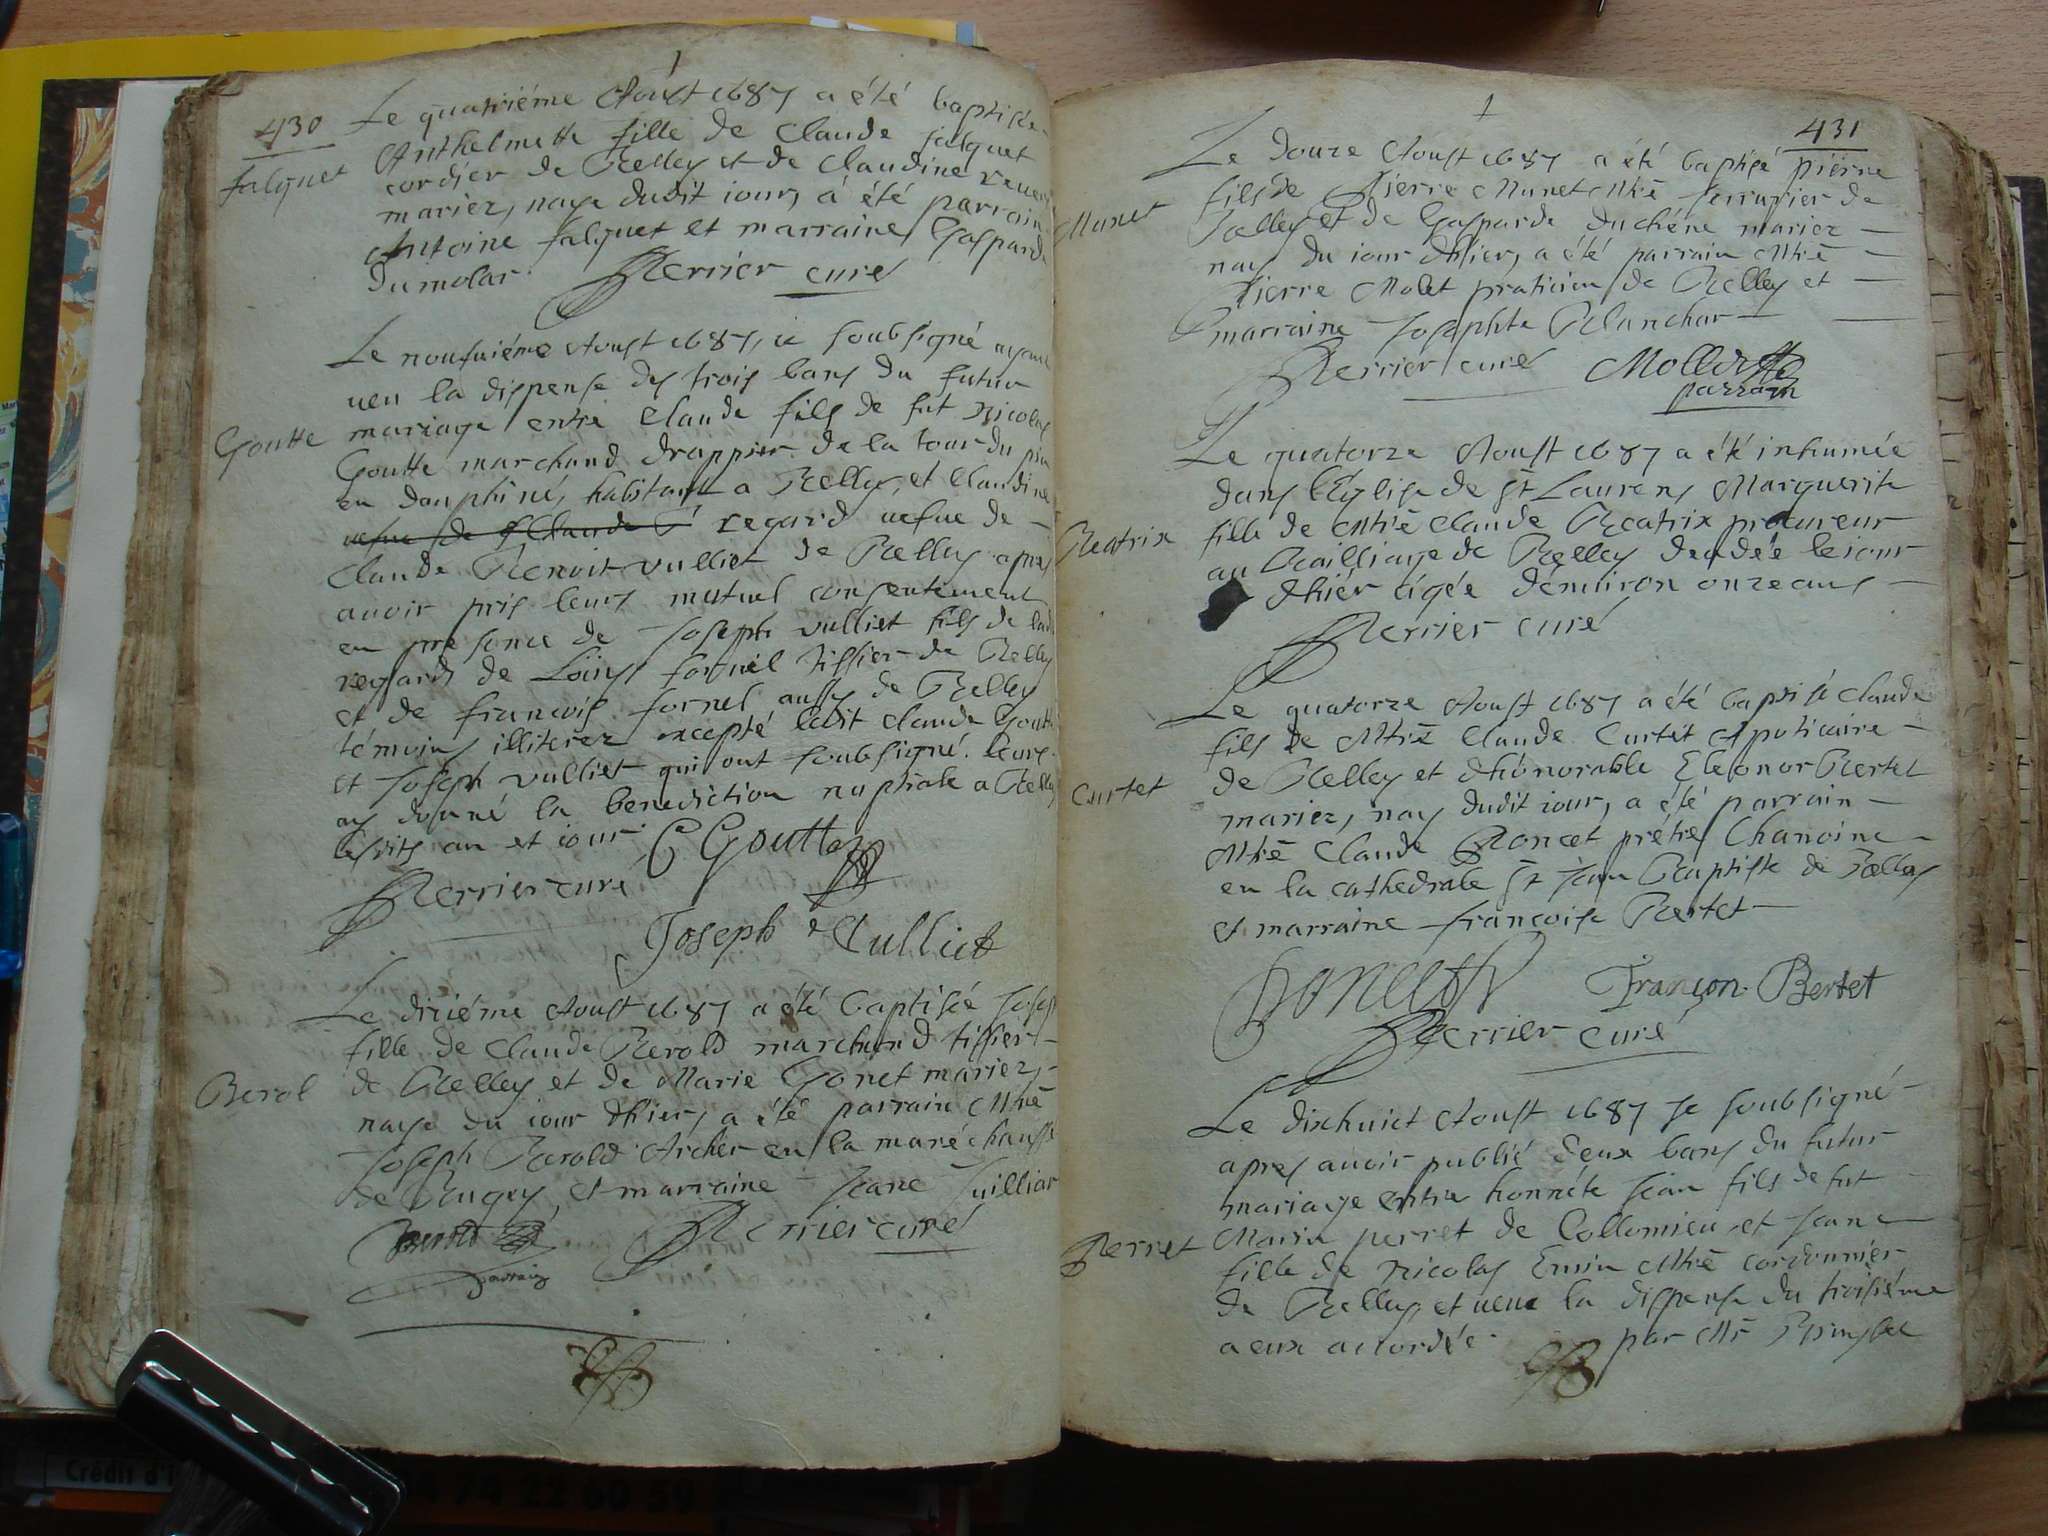 430
Le quatriéme Aoust 1687 a été baptisée
Anthelmette fille de Claude falquet
falquet
cordier de Belley et de Claudine
mariez, naye dudit iour, á été parrain
Antoine falquet et marraine Gasparde
Dumolar Perrier curé
Le neufuiéme Aoust 1687, ie soubsigné ayant
ueu la dispense des trois bans du futur
mariage entre Claude fils de fut Nicolas
Goutte
Goutte marchand drappier de la tour du pin
en dauphiné, habitant a Belley, et Claudine
uefue de Claude regard uefue de
Claude Benoit vulliet de Belley apres
auoir pris leurs mutuel consentement
en presence de Joseph vulliet fils de lad
regard, de Loüis fornel tissier de Belley
et de francois fornel aussy de Belley
témoins illiterez excepté ledit Claude Goutte
et Joseph vulliet qui ont soubsigné. leurs
ay donné la benediction nuptiale a Belley
lesdits an et iour. C Goutte
Perrier curé
Joseph Vulliet
Le diziéme Aoust 1687 a été baptisée Joseph
fille de Claude Berold marchand tissier
Berol
de Belley et de Marie Gonet mariez,
naye du iour dhier, a été parrain Mtre
Joseph Berold Archer en la maréchaussé
de Bugey, et marraine Jeane Juilliar
Berold Perrier curé
parrain
431
Le douze Aoust 1687 a été baptisé pierre
fils de Pierre Munet Mtre serrurier de
Munet
Belley et de Gasparde Duchéne mariez
nay du iour dhier, a été parrain Mtre
Pierre Molet praticien de Belley et
marraine Josephte Planchar
Perrier curé Mollet
parrain
Le quatorze Aoust 1687 a été inhumée
dans l'Eglise de St Laurens Marguerite
fille de Mtre Claude Beatrix procureur
Beatrix
au Bailliage de Belley decedée le iour
dhiér ágée dénuiron onze ans
Perrier curé
Le quatorze Aoust 1687 a été baptisé Claude
fils de Mtre Claude Curtet Apoticaire
de Belley et dhonorable Eleonor Bertet
Curtet
mariez, nay dudit iour, a été parrain
Mtre Claude Poncet prétre Chanoine
en la cathedrale St Jean Baptiste de Belley
et marraine francoise Bertet
Françon Bertet
Perrier curé
Le dixhuict Aoust 1687 Je soubsigné
apres auoir publié deux bans du futur
mariage entre honnéte Jean fils de fut
Perret
Marin perret de Collomieu et Jeane
fille de Nicolas Emin Mtre cordonnier
de Belley, et ueue la dispense du troisiéme
a eux accordée par Mr